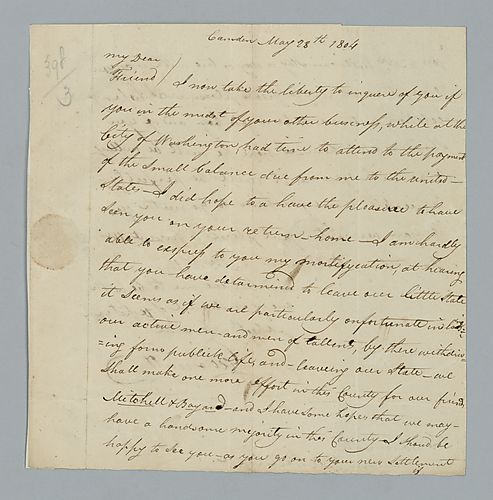 Camden May 28th 1804
398
3
My Dear
Friend I now take the liberty to inquere of you if
you in the midst of your other business, while at the
City of Washington had time to attend to the payment
of the Small balance due from me to the united-
States - I did hope to a have the pleasure to have
Seen you on your return home - I am hardly
able to express to you my mortifycation, at hearing
that you have determined to leave our little State
it Seems as if we are particularly onfortunate in
our active men - and men of tallents, by there withdraw-
=ing form publick life, and - leaveing our State - we
Shall make one more effort in this County for our friends
Mitchell & Bayard - and I have Some hopes that we may-
have a handsome majority in this County - I Shoud be
happy to See you - as you go on to your new Settlement